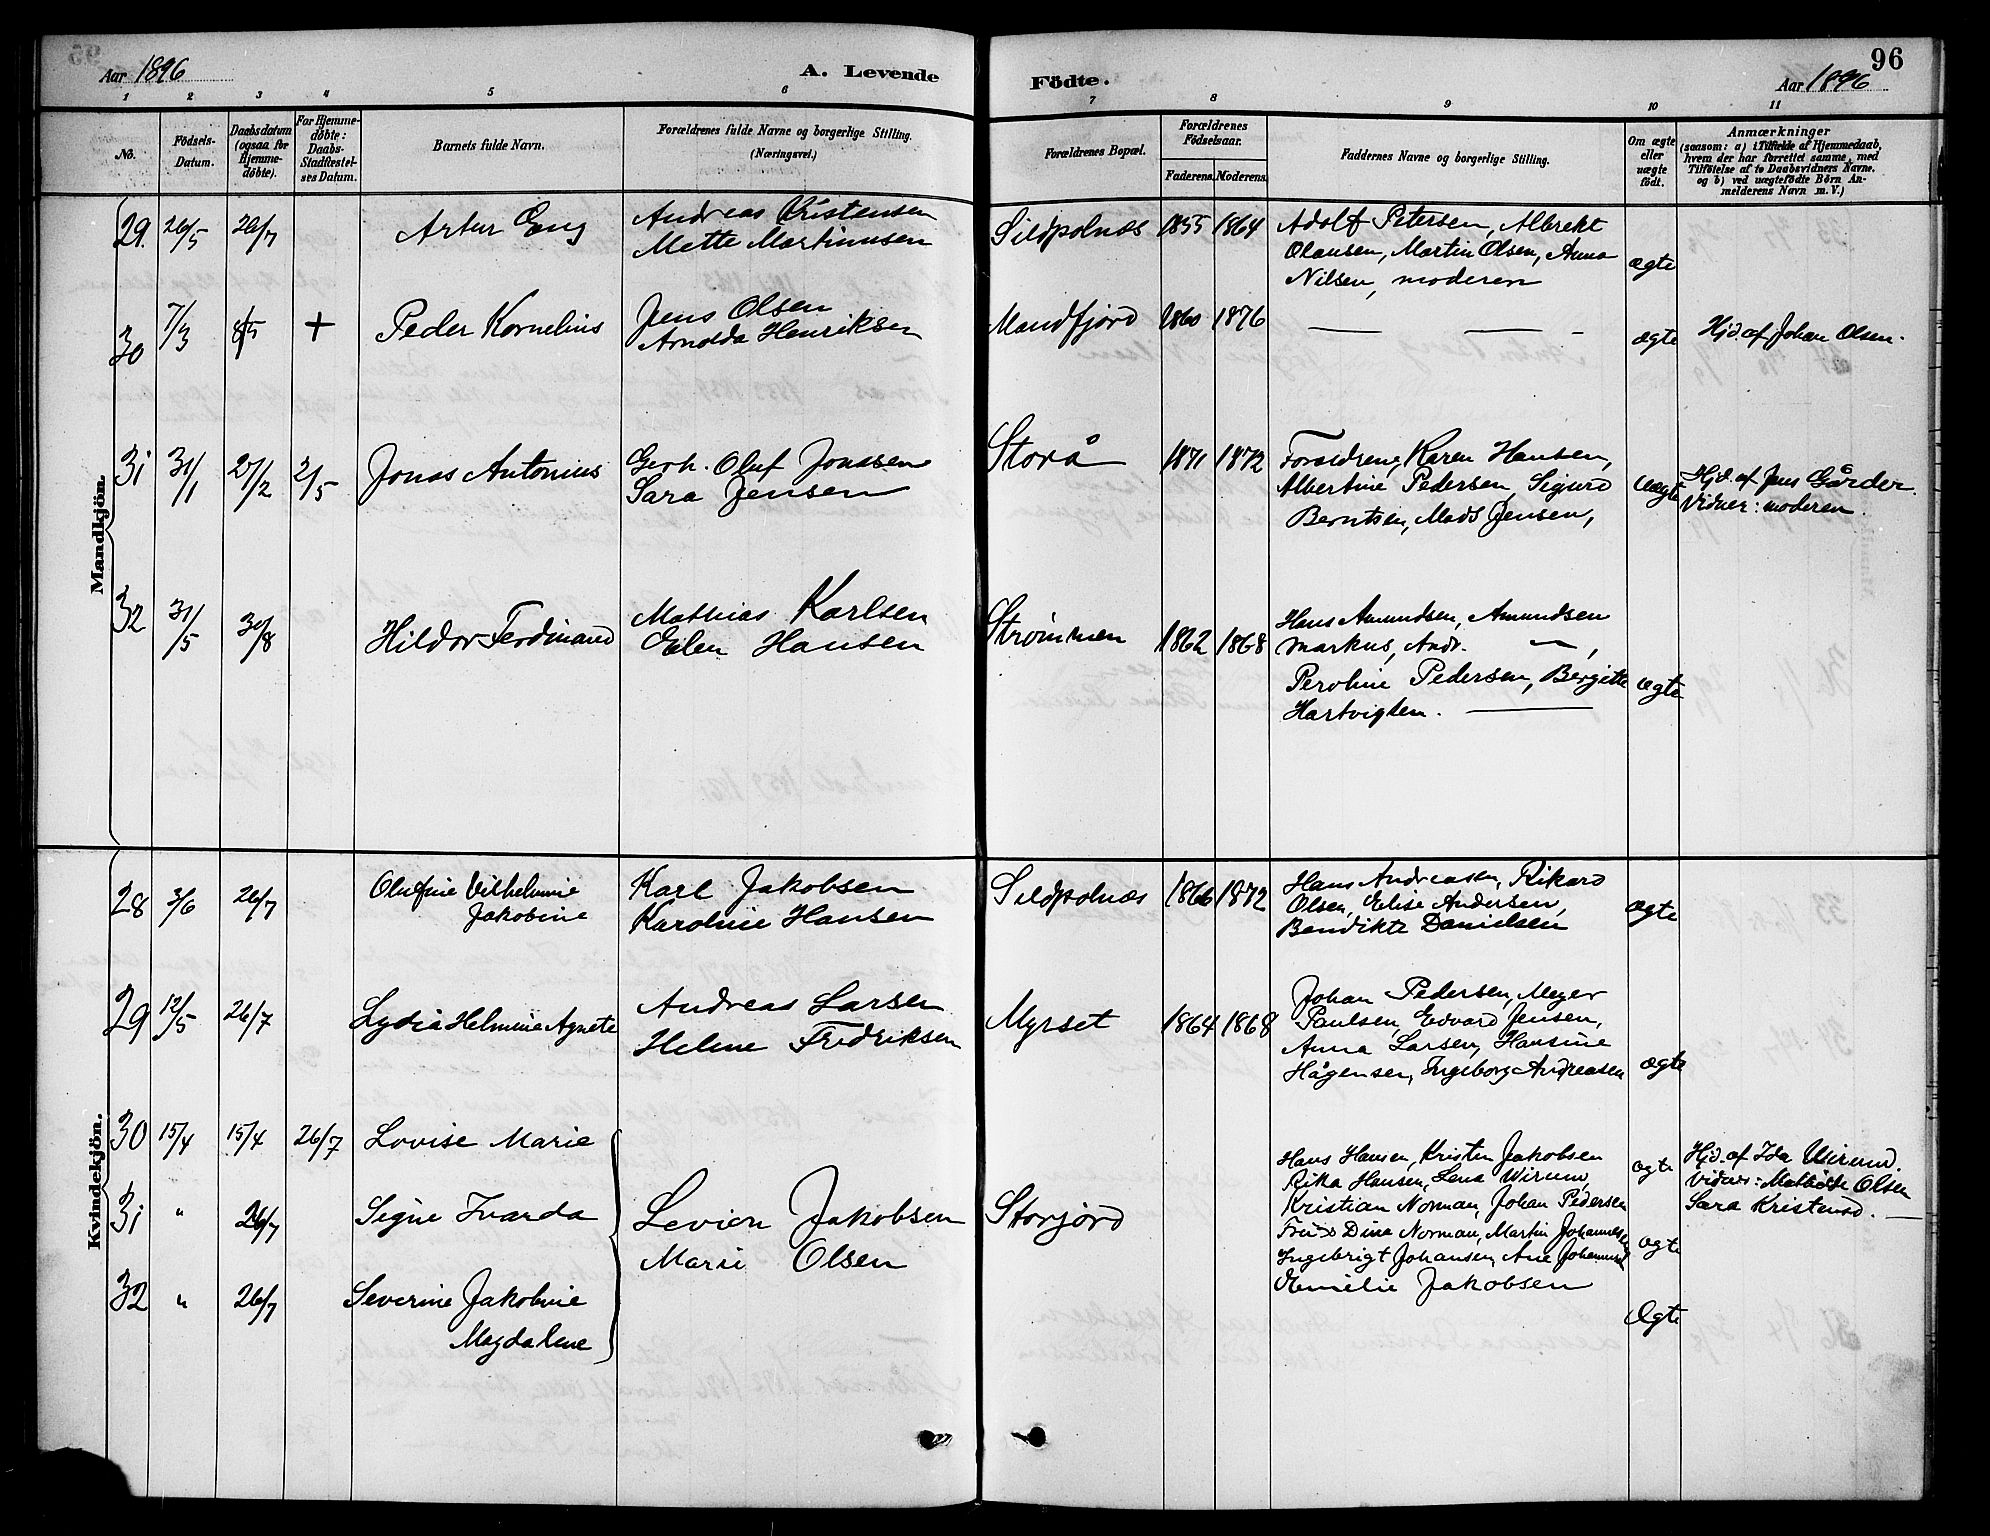 96
Aar 1896
A. Levende
Födte.
Aar 1896
1 2 3 4 5 6 7 8 9 10 11
No.
Födsels-Datum.
Daabsdatum (ogsaa for Hjemmedøbte).
For Hjemmedøbte: Daabs-Stadfæstelses Datum.
Barnets fulde Navn.
Forældrenes fulde Navne og borgerlige Stilling. (Næringsvei.)
Forældrenes Bopæl.
Forældrenes Födselsaar.
Faderens. Moderens.
Faddernes Navne og borgerlige Stilling.
Om ægte eller uægte födt.
Anmærkninger
(saasom: a) i Tilfælde af Hjemmedaab,
hvem der har forrettet samme, med
Tilföielse af to Daabsvidners Navne.
og b) ved uægtefödte Börn An-
melderens Navn m. V.)
Mandkjön.
29. 26/5 26/7 Artur Eng
Andreas Kristensen
Mette Martinusen
Sildpolnæs 1855 1864
Adolf Petersen, Albrekt
Olausen, Martin Olsen, Anna
Nilsen, moderen
ægte
30 7/3 8/5 + Peder Kornelius
Jens Olsen
Arnolda Henriksen
Mandfjord 1860 1876 — — -
ægte
Hjd. af Johan Olsen.
31 31/1 27/2 2/5 Jonas Antonius
Gerh. Oluf Jonasen
Sara Jensen
Storå 1871 1872
Forældrene, Karen Hansen,
Albertine Pedersen, Sigurd
Berntsen, Mads Jensen,
uægte
Hjd. af Jens Gårder.
Vidner: moderen
32 31/5 30/8 Hildor Ferdinand
Mathias Karlsen
Elen Hansen
Strömmen 1862 1868
Hans Amundsen, Amundsen
Markus, Andr. — ,
Peroline Pedersen, Bergitte
Hartvigsen. —
ægte
Kvindekjön.
28 3/6 26/7 Olufine Vilhelmine
Jakobine
Karl Jakobsen
Karoline Hansen
Sildpolnæs 1866 1872
Hans Andreasen, Rikard
Olsen, Elise Andersen,
Bendikte Danielsen
ægte
29 12/5 26/7 Lydia Helmine Agnete
Andreas Larsen
Helene Fredriksen
Myrset 1864 1868
Johan Pedersen, Meyer
Paulsen, Edvard Jensen,
Anna Larsen, Hansine
Hågensen, Ingeborg Andreasen
ægte
30 15/4 15/4 26/7 Lovise Marie
31 " 26/7 Signe Ivarda
32 " 26/7 Severine Jakobine
Magdalene
Levion Jakobsen
Marie Olsen
Storjord
Hans Hansen, Kristen Jakobsen
Rika Hansen, Lena Wirum,
Kristian Norman, Johan Pedersen
Dina Norman, Martin Johannesen
Ingebrigt Johansen, Ane
Emelie Jakobsen
ægte
ægte
Ægte
Hjd. af Ida Wirum.
Vidner: Olsen
Sara Kristensd. —